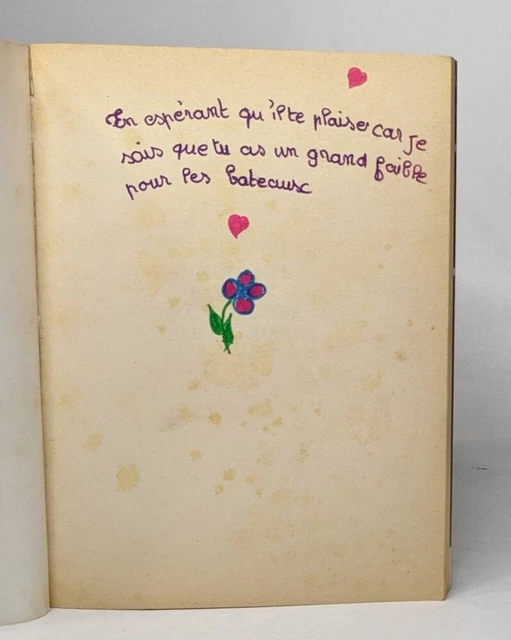 En espérant qu'il te plaise car je
sais que tu as un grand faible
pour les bateaux